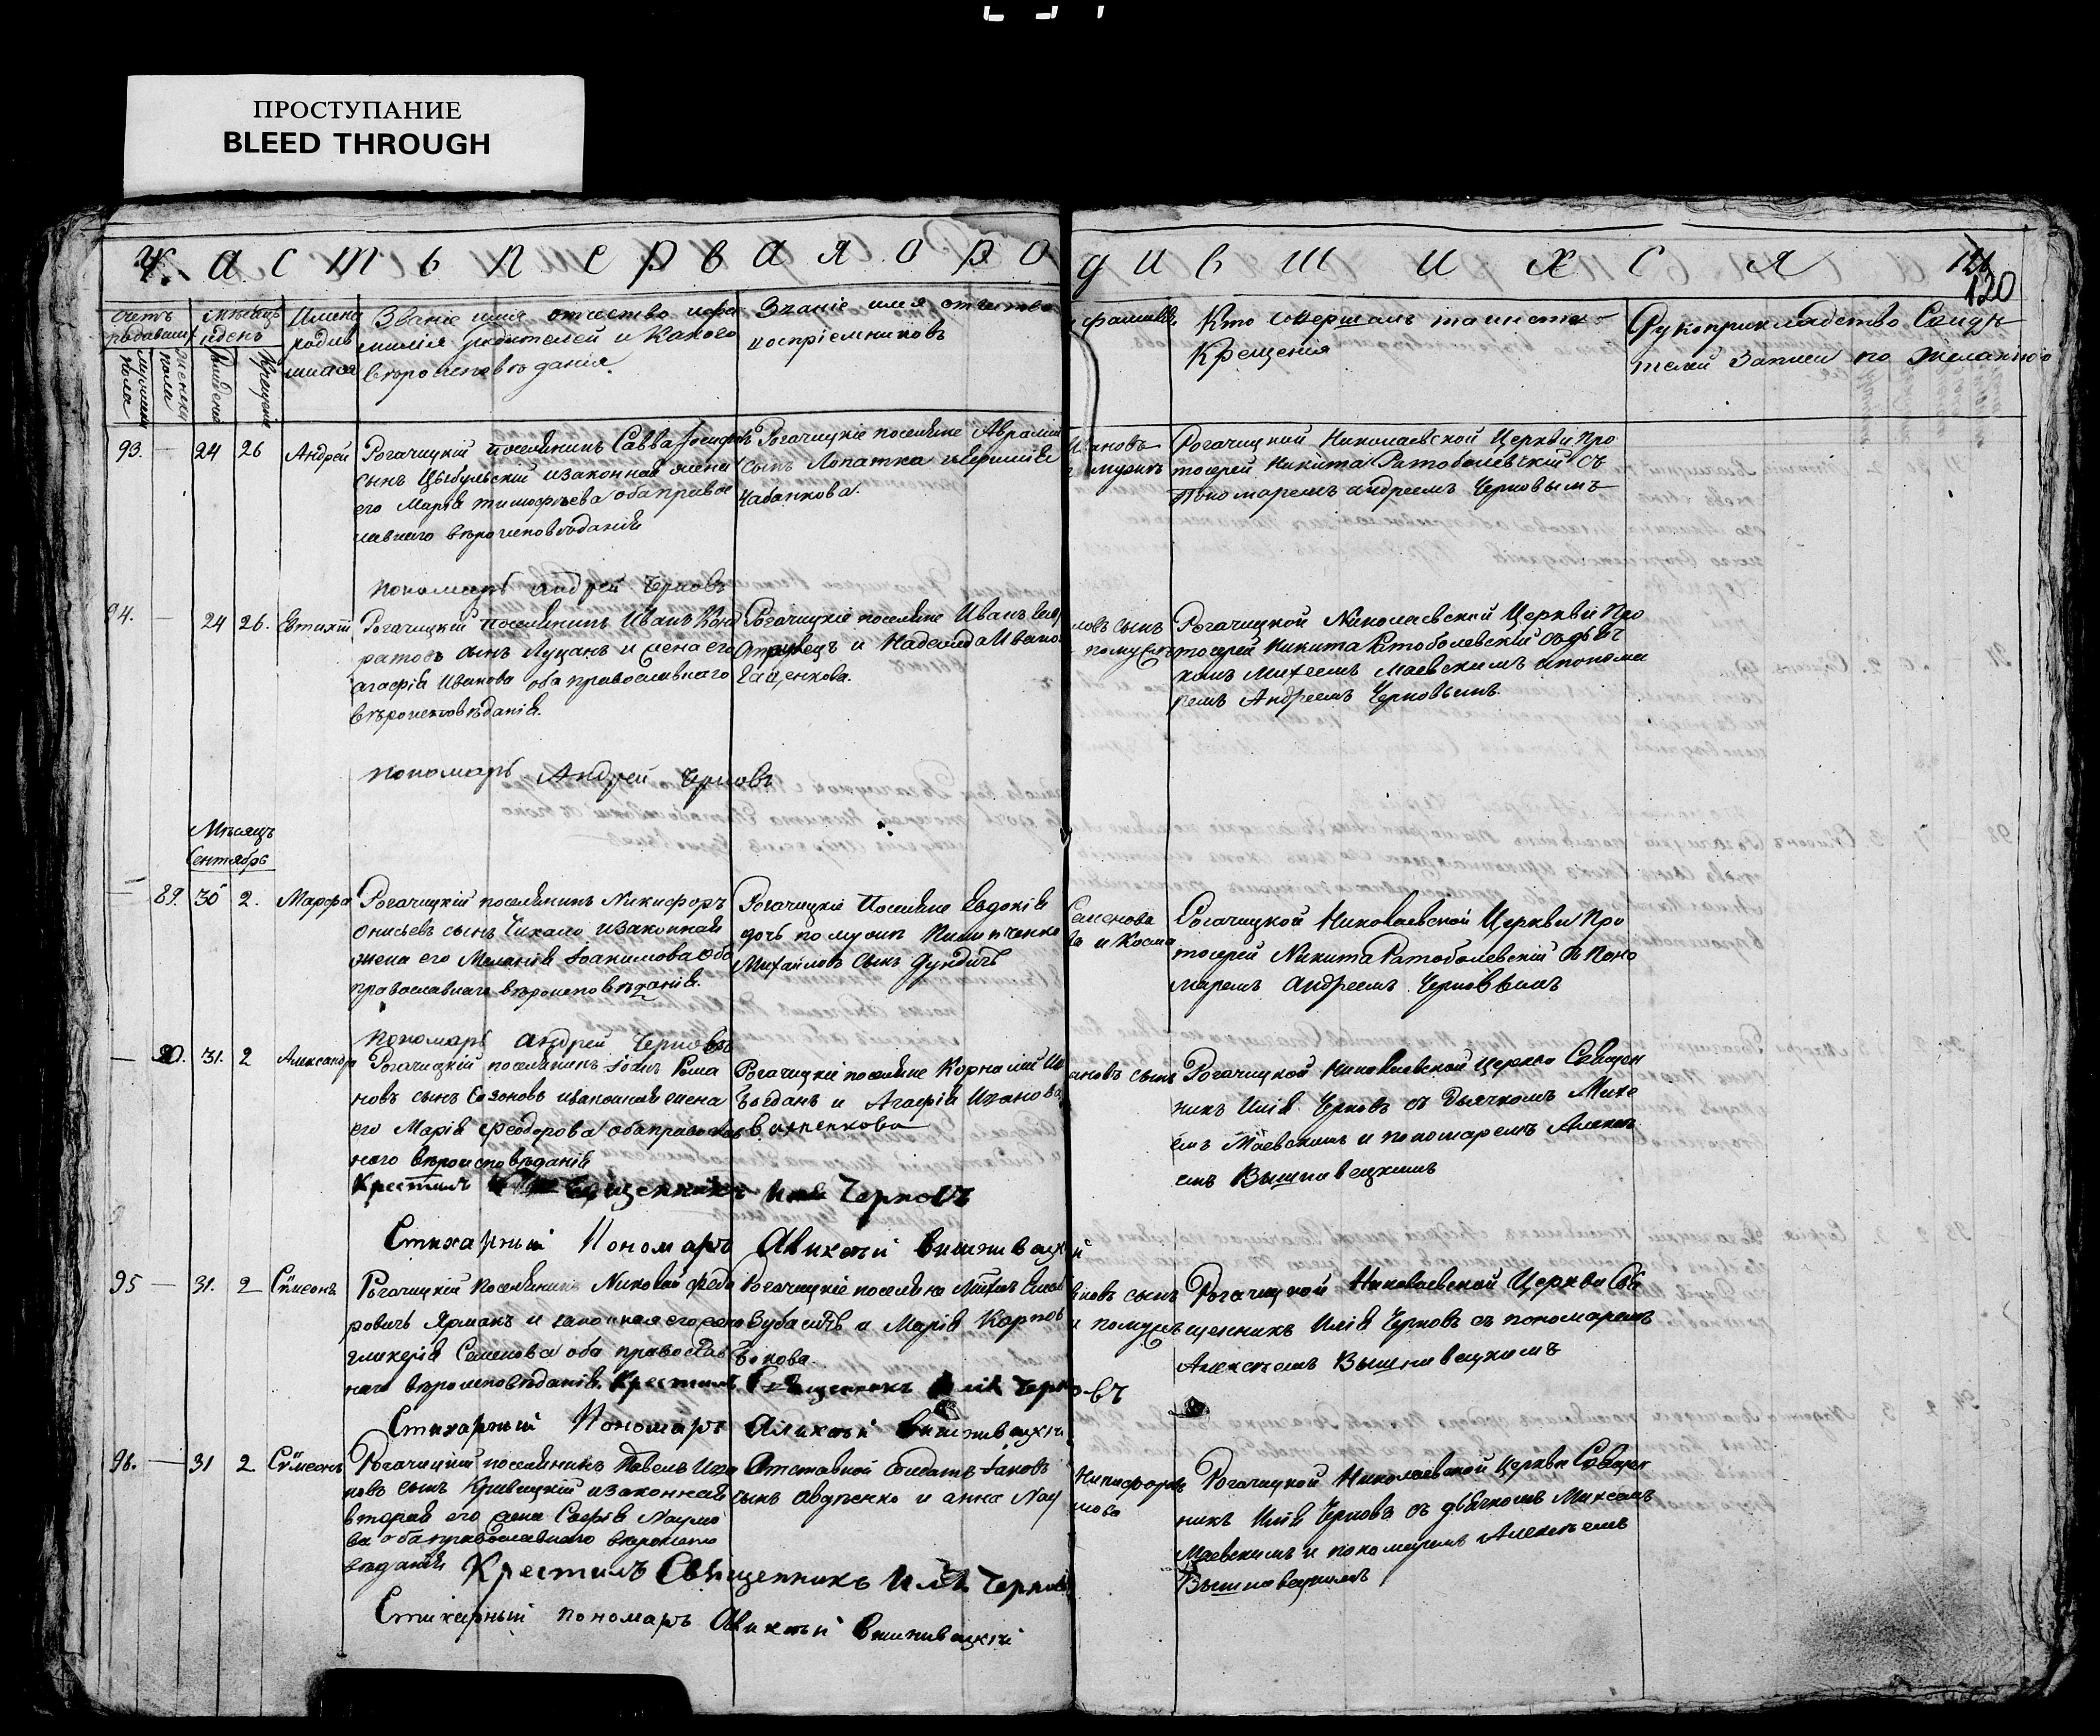 ПРОСТУПАНИЕ
BLEED THROUGH
Часть первая о родившихся
120
Счетъ родившихся
мужеска пола
женска пола
Мѣсяцъ и день
рожденія
крещенія
Имена родившихся
Званіе имя отчество и фамилія родителей и какого вѣроисповѣданія.
Званіе имя отчество и фамилія воспріемниковъ
Кто совершалъ таинство Крещенія
Рукоприкладство Свидѣтелей Записи по желанію
93. — 24 26 Андрей
Рогачицкій поселянинъ Савва
сынъ Цыбульскій и законная жена
его Марія Тимофѣева оба православнаго вѣроисповѣданія
Рогачицкіе поселяне Аврамъ Ивановъ
сынъ Лопатка
Чабанкова.
Рогачицкой Николаевской Церкви Про
тоіерей Никита Ратоболевскій съ
Пономаремъ Андреемъ Черновымъ
Пономарь Андрей Черновъ
94. — 24 26. Евтихій
Рогачицкій поселянинъ Иванъ Конд
ратовъ сынъ Луцанъ и жена его
Агафія Иванова оба православнаго
вѣроисповѣданія.
Рогачицкіе поселяне Иванъ
и Надежда Иванова
Рогачицкой Николаевской Церкви Про
тоіерей Никита Ратоболевскій съ дья
комъ Михеемъ Маевскимъ и понома
ремъ Андреемъ Черновымъ.
Пономарь Андрей Черновъ
Мѣсяцъ
Сентябрь
— 89. 30 2. Марфа
Рогачицкій поселянинъ Никифоръ
Онисьевъ сынъ Чихало и законная
жена его Меланія Іоакимова оба
православнаго вѣроисповѣданія.
Рогачицкіе Поселяне Евдокія Семенова
дочь по мужѣ и Косма
Михайловъ сынъ
Рогачицкой Николаевской Церкви Про
тоіерей Никита Ратоболевскій съ Поно
маремъ Андреемъ Черновымъ
Пономарь Андрей Черновъ
— 90. 31. 2 Александр
Рогачицкій поселянинъ Іоанъ Рома
новъ сынъ Сазоновъ и законная жена
его Марія Феодорова оба православ
наго вѣроисповѣданія
Рогачицкіе поселяне Корнилій Ивановъ сынъ
Богданъ и Агафія Иванова
Рогачицкой Николаевской Церкви Священ
никъ Илія Черновъ съ Дьячкомъ Михе
емъ Маевскимъ и пономаремъ Алексѣ
емъ Вышневецкимъ
Крестилъ Священникъ Илія Черновъ
Стихарный Пономарь Алексій Вишневацкій
95 — 31. 2 Сѵмеонъ
Рогачицкій Поселянинъ Николай Федо
ровичь Ярмакъ и законная его жена
Гликерія Семенова оба православ
наго вѣроисповѣданія.
Рогачицкіе поселяне
и Марія Карпова
Рогачицкой Николаевской Церкви Свя
щенникъ Илія Черновъ съ пономаремъ
Алексѣемъ Вышневецкимъ
Крестилъ Священникъ Илія Черновъ
Стихарный Пономарь Алексій Вишневацкій
96. — 31 2 Сѵмеонъ
Рогачицкій поселянинъ Павелъ Ива
новъ сынъ Кривицкій и законная
вторая его жена Софія Наумо
ва оба православнаго вѣроиспо
вѣданія
Отставной Солдатъ Іаковъ Никифоровъ
сынъ Авдѣенко и Анна Наумова
Рогачицкой Николаевской Церкви Священ
никъ Илія Черновъ съ дьячкомъ Михеемъ
Маевскимъ и пономаремъ Алексѣемъ
Вышневецкимъ
Крестилъ Священникъ Илія Черновъ
Стихарный пономарь Алексій Вишневацкій